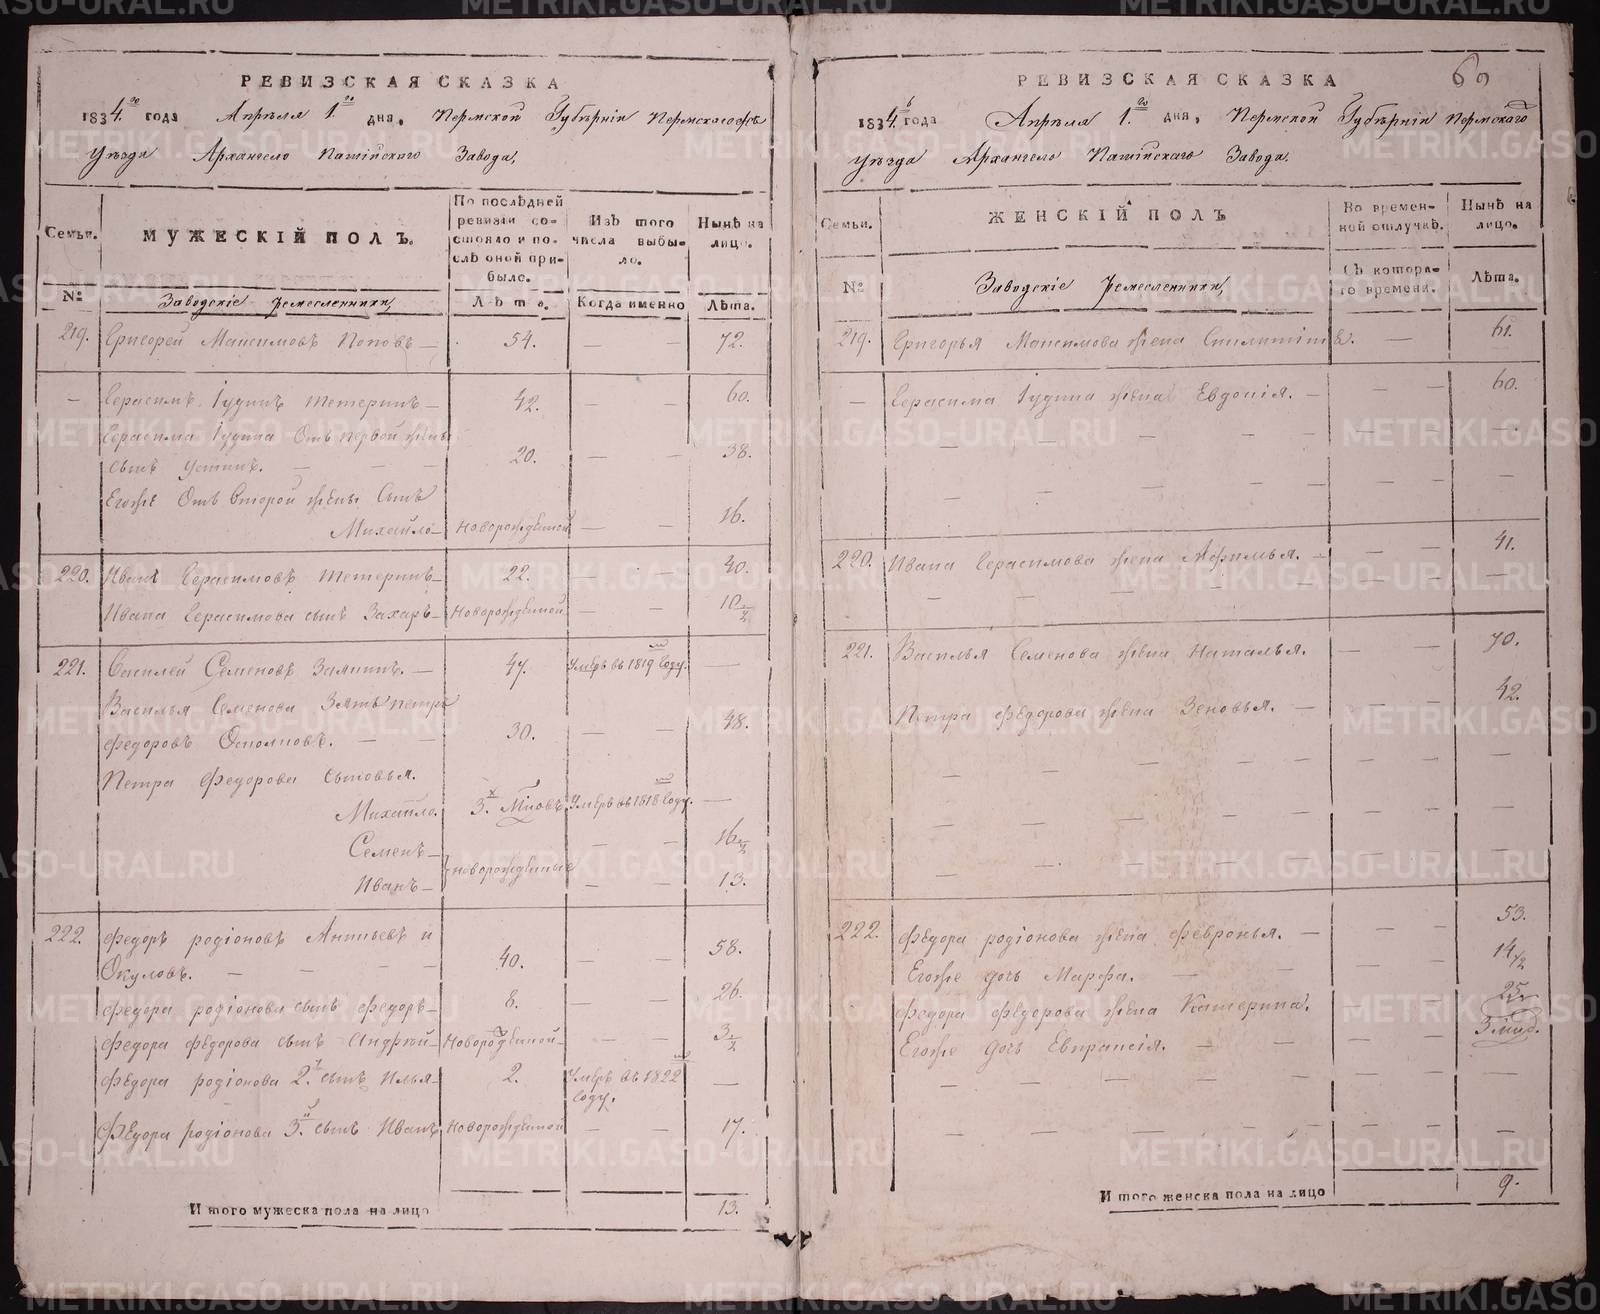 РЕВИЗСКАЯ СКАЗКА
1834.го года Апрѣля 1.го дня, Пермской Губѣрніи Пермскаго
Уѣзда Архангело Пашійскаго Завода,
Семьи.
МУЖЕСКІЙ ПОЛЪ.
По послѣдней ревизіи состояло и послѣ оной прибыло.
Изъ того числа выбыло.
Нынѣ на лицо.
№ Заводскіе Ремесленники, Лѣта. Когда именно Лѣта.
219. Григорей Максимовъ Поповъ — 54. — — 72.
— Герасимъ Іудинъ Тетеринъ — 42. — — 60.
Герасима Іудина Отъ первой жены
сынъ Устинъ. — — — 20. — — 38.
Егоже Отъ Второй жены Сынъ
Михайло — новорожденной — — 16.
220. Иванъ Герасимовъ Тетеринъ — 22. — — 40.
Ивана Герасимова сынъ Захаръ — новорожденной — — 10 1/2
221. Василей Семеновъ Заякинъ. — 47. Умеръ въ 1819 Году. —
Василья Семенова Зять петръ
федоровъ — — 30. — — 48.
Петра Федорова сыновья.
Михайло. 3.х Умеръ въ 1818 Году. —
Семенъ — — — 16 1/2
новорожденные
Иванъ — — — 13.
222. Федоръ родіоновъ и
Окуловъ. — — — — 40. — — 58.
Федора родіонова сынъ федоръ — 8. — — 26.
Федора федорова сынъ Андрей — Новорожденной — — — 3 1/2
Федора родіонова 2.й сынъ Илья — 2. Умеръ въ 1822 —
Году.
Федора родіонова 3.й сынъ Иванъ, новорожденной — — 17.
И того мужеска пола на лицо 13.
60
РЕВИЗСКАЯ СКАЗКА
1834. года Апрѣля 1.го дня, Пермской Губѣрніи Пермскаго
Уѣзда Архангело Пашійскаго Завода.
Семьи.
ЖЕНСКІЙ ПОЛЪ
Во временной отлучкѣ.
Нынѣ на лицо.
№ Заводскіе Ремесленники, Съ котораго времени. Лѣта.
219. Григорья Максимова жена — 61.
— Герасима Іудина жена Евдокія. — — — 60.
220. Ивана Герасимова жена Афимья. — — — 41.
221. Василья Семенова жена Наталья. — — 70.
Петра Федорова жена Зеновья. — — — 42.
222. Федора родіонова жена февронья. — — — 53.
Егоже дочь Марфа. — — — — 14 1/2
Федора Федорова жена Катерина. — — 25.
Егоже дочь Евпраксія. — — — — 3 мѣс.
И того женска пола на лицо 9.
METRIKI.GASO-URAL.RU